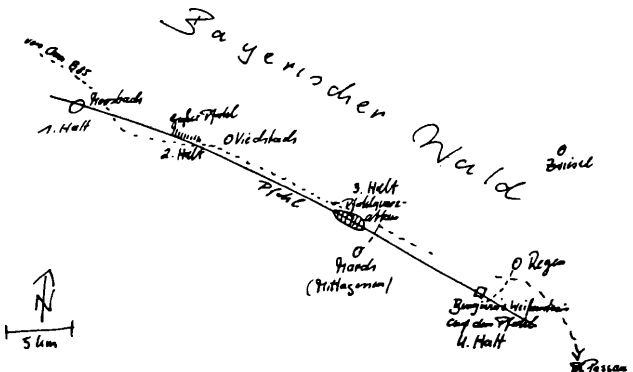 Bayerischer Wald
von Cham B85
Moosbach
1. Halt
großer Pfahl
2. Halt
Viechtach
Pfahl
3. Halt
Pfahlquarz-
abbau
Zwiesel
March
(Mittagessen)
Regen
Burgruine Weißenstein
auf dem Pfahl
4. Halt
Passau
N
5 km